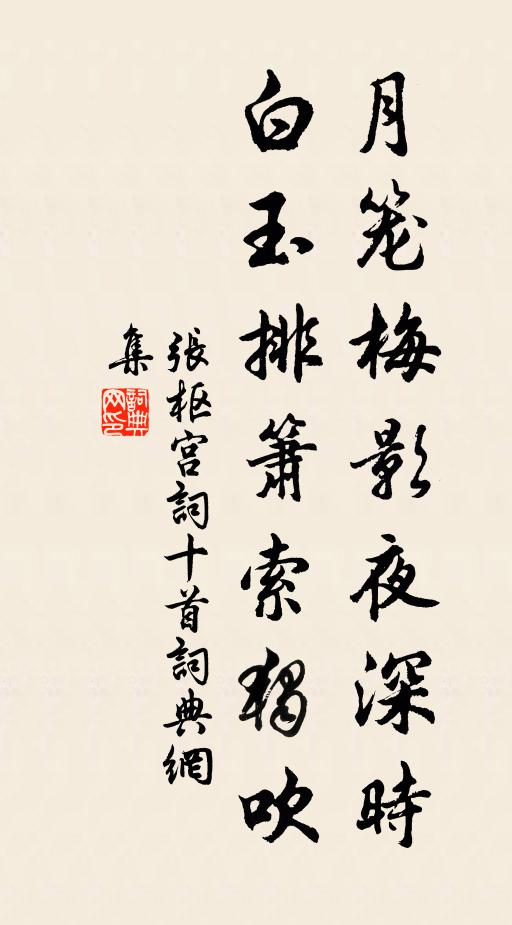 月笼梅影夜深時
白玉排箫索独吹
張枢宫詞十首詞典網
集
詞典
网印